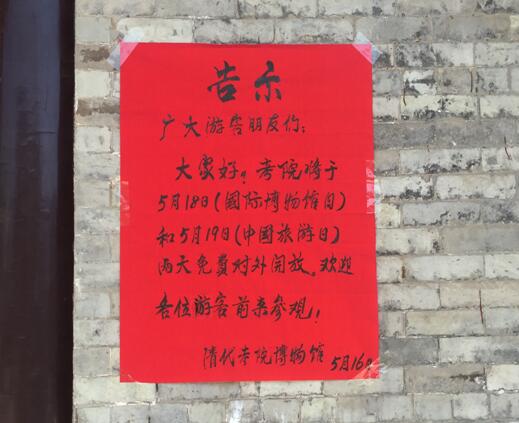 告示
广大游客朋友们：
大家好！考院将于
5月18日（國际博物馆日）
和5月19日（中國旅游日）
两天免費对外開放。欢迎
各位游客前来参观！
清代考院博物馆 5月16日